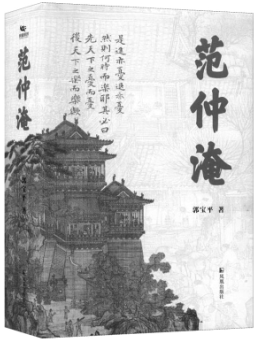 范仲淹
郭宝平 著
是進亦憂退亦憂
然則何時而樂耶其必曰
先天下之憂而憂
後天下之樂而樂歟